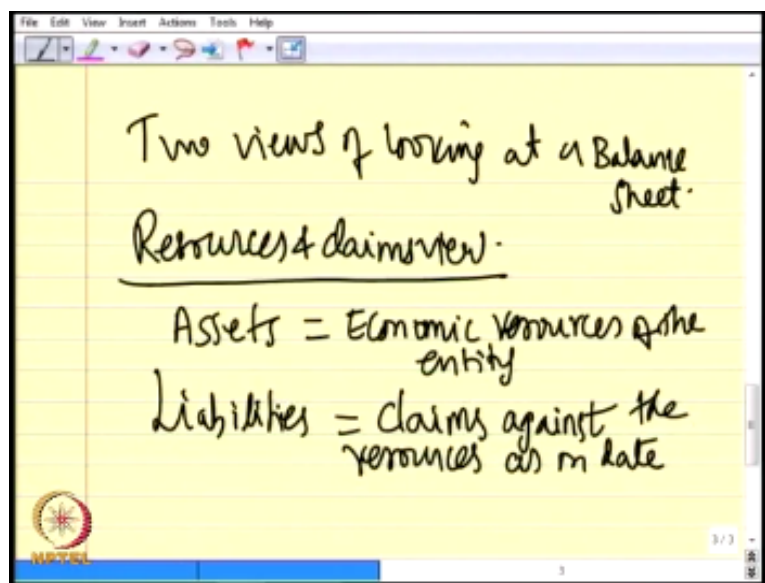 File Edit View Insert Actions Tools Help
Two views of looking at a Balance
Sheet.
Resources & claims view.
Assets = Economic resources of the
entity
Liabilities = claims against the
resources as on date
NPTEL
3/3
3